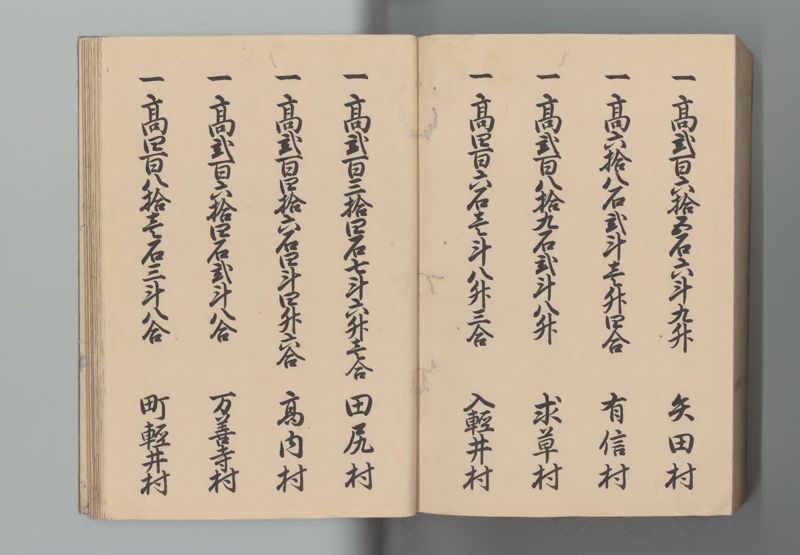 一 高弐百六拾五石六斗九升 矢田村
一 高六拾八石弐斗壱升四合 有信村
一 高弐百八拾九石弐斗八升 求草村
一 高四百六石壱斗八升三合 入軽井村
一 高弐百三拾四石七斗六升壱合 田尻村
一 高弐百四拾六石四斗四升六合 高内村
一 高弐百六拾四石弐斗八合 万善寺村
一 高四百八拾壱石三斗八合 町軽井村